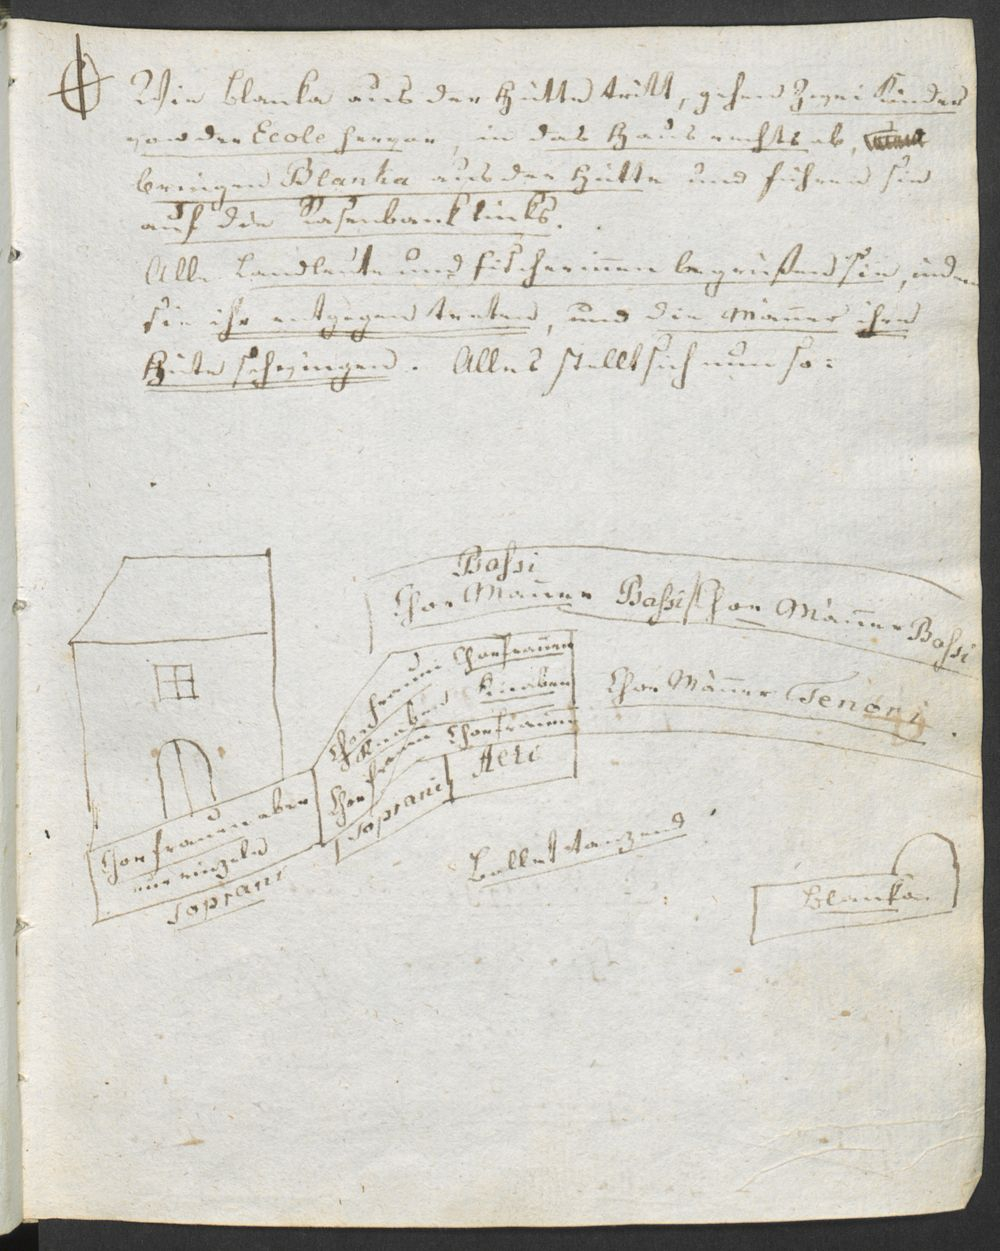 Wie Blanka aus der Hütte tritt, gehen zwei Kinder
von der Ecole hervor, in das Haus rechts ab,
bringen Blanka aus der Hütte und führen sie
auf die Rasenbank links.
Alle Landleute und Fischerinnen begrüßen sie, indem
sie ihr entgegen treten, und die Männer ihre
Hüte schwingen. Alles stellt sich nun so:
Bassi
Chor Männer Bassi Chor Männer Bassi
Chorfrauen Chorfrauen
Knaben Knaben
Chorfrauen Chorfrauen
Soprani Alti
Chor Männer Tenori
Chorfrauen aber
nur einzeln
Soprani
Ballet tanzend
Blanka